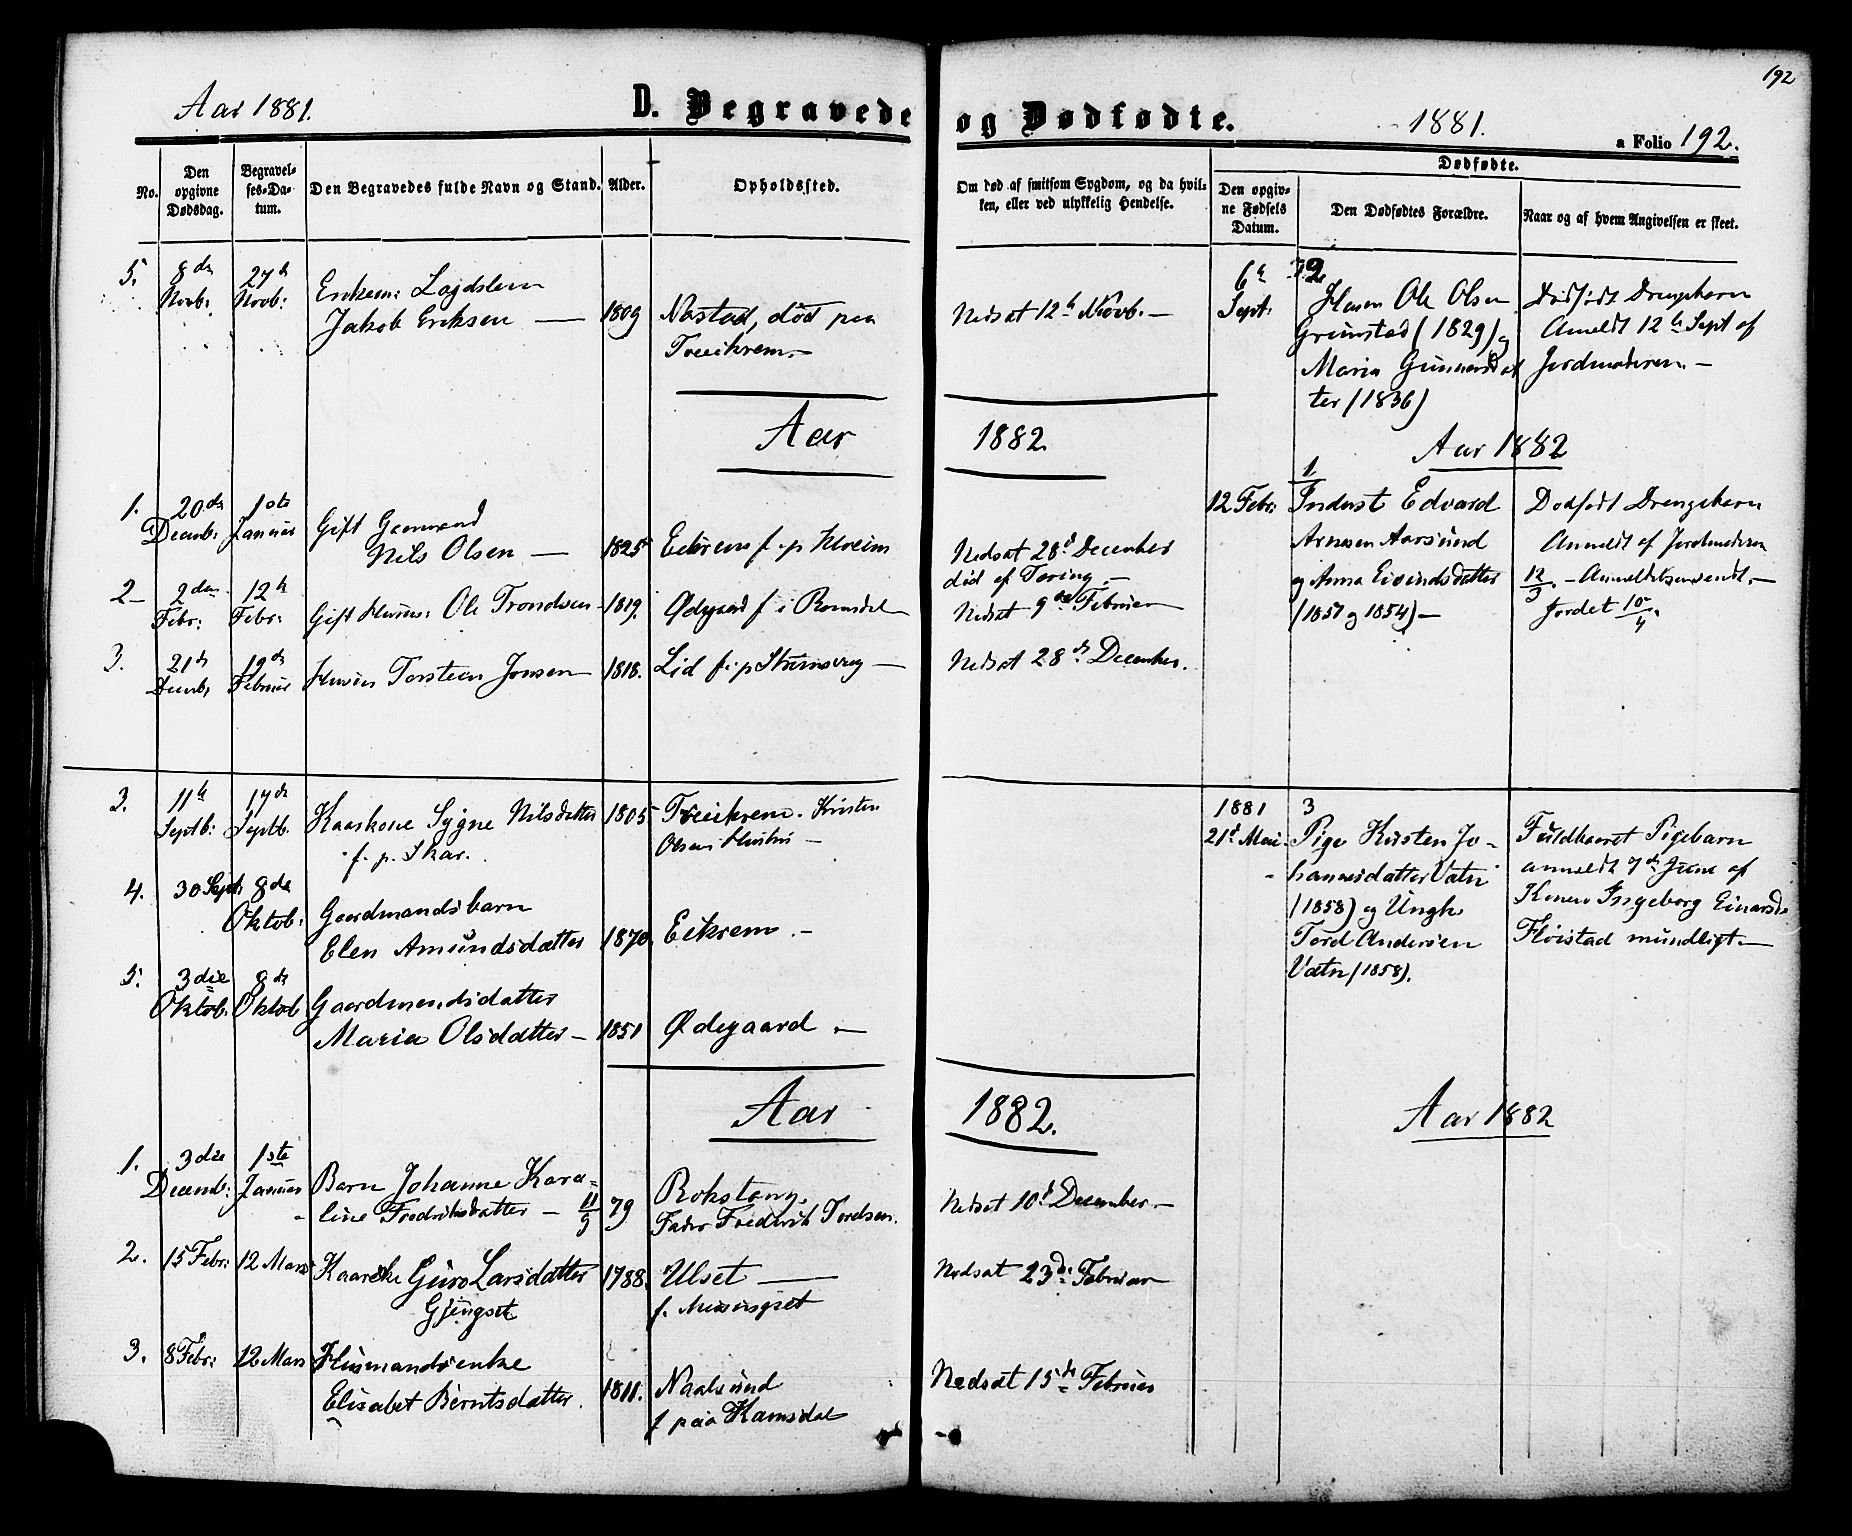 192
Aar 1881.
D. Begravede og Dødfødte.
1881.
a Folio 192.
No.
Den opgivne Dødsdag.
Begravelses-Datum.
Den Begravedes fulde Navn og Stand.
Alder.
Opholdssted.
Om død af smitsom Sygdom, og da hvilken, eller ved ulykkelig Hendelse.
Dødfødte.
Den opgivne Fødsels Datum.
Den Dødfødtes Forældre.
Naar og af hvem Angivelsen er skeet.
5. 8de Novb: 27de Novb:
Jakob Eriksen — 1809
Nastad, død paa
Treekrem. —
Nedsat 12te Novb. —
6te Sept: 2
Ole Olsen
Grimstad (1829) og
Maria Gunnarsdatter (1836)
Dødfødt Drengebarn
Anmeldt 12te Sept af
Jordmoderen. —
Aar 1882.
Aar 1882
1. 20de Decemb: 1ste Januar
Gift Gaarmand
Nils Olsen — 1825
Eekrem f. p.
Nedsat 28de December
død af Tæring. —
2. 2den Febr: 12te Febr:
Gift Huusm: Ole Trondsen 1819.
Ødegaard f i Romsdal
Nedsat 9de Februar
3. 21de Decemb. 19de Februar
Torsteen Jonsen 1818.
Lid f. p.
Nedsat 28de December.
12 Febr: 1
Inderst Edvard
Arnesen Aarsund
og Anna Eivindsdatter
(1857 og 1854) —
Dødfødt Drengebarn
Anmeldt af Jordmoderen
12/3. —
Jordet 10/4.
3. 11te Septb: 17de Septb.
Kaarkone Sygne Nilsdatter 1805
f. p. Skar.
Treekrem. Kristen
Olsens Hustru —
4. 30 Sept: 8de Oktob:
Gaardmandsbarn
Elen Amundsdatter 1870.
Eikrem. —
5. 3die Oktob. 8de Oktob
Gaardmandsdatter
Maria Olsdatter — 1851
Ødegaard. —
1881 3
21de Mai
Pige Kirsten Johannesdatter Vatn
(1858) og Ungk.
Tord Andersen
Vatn (1858).
Fuldbaaret Pigebarn
anmeldt 7de Juni af
Konen Ingeborg Einarsd.
Fløistad mundligt. —
Aar 1882.
Aar 1882
1. 3die Decemb: 1ste Januar
Barn Johanne Karoline Fredriksdatter — 11/9 79
Rokstang.
Fader Frederik Tordsen.
Nedsat 10de December —
2. 15 Febr: 12 Mars
Kaarenke Guro Larsdatter 1788.
Gjengset
Ulset —
Nedsat 23de Februar
3. 8 Febr: 12 Mars
Husmandsenke
Elisabet Berntsdatter. 1811.
Naalsund
f paa Ramsdal
Nedsat 15de Februar